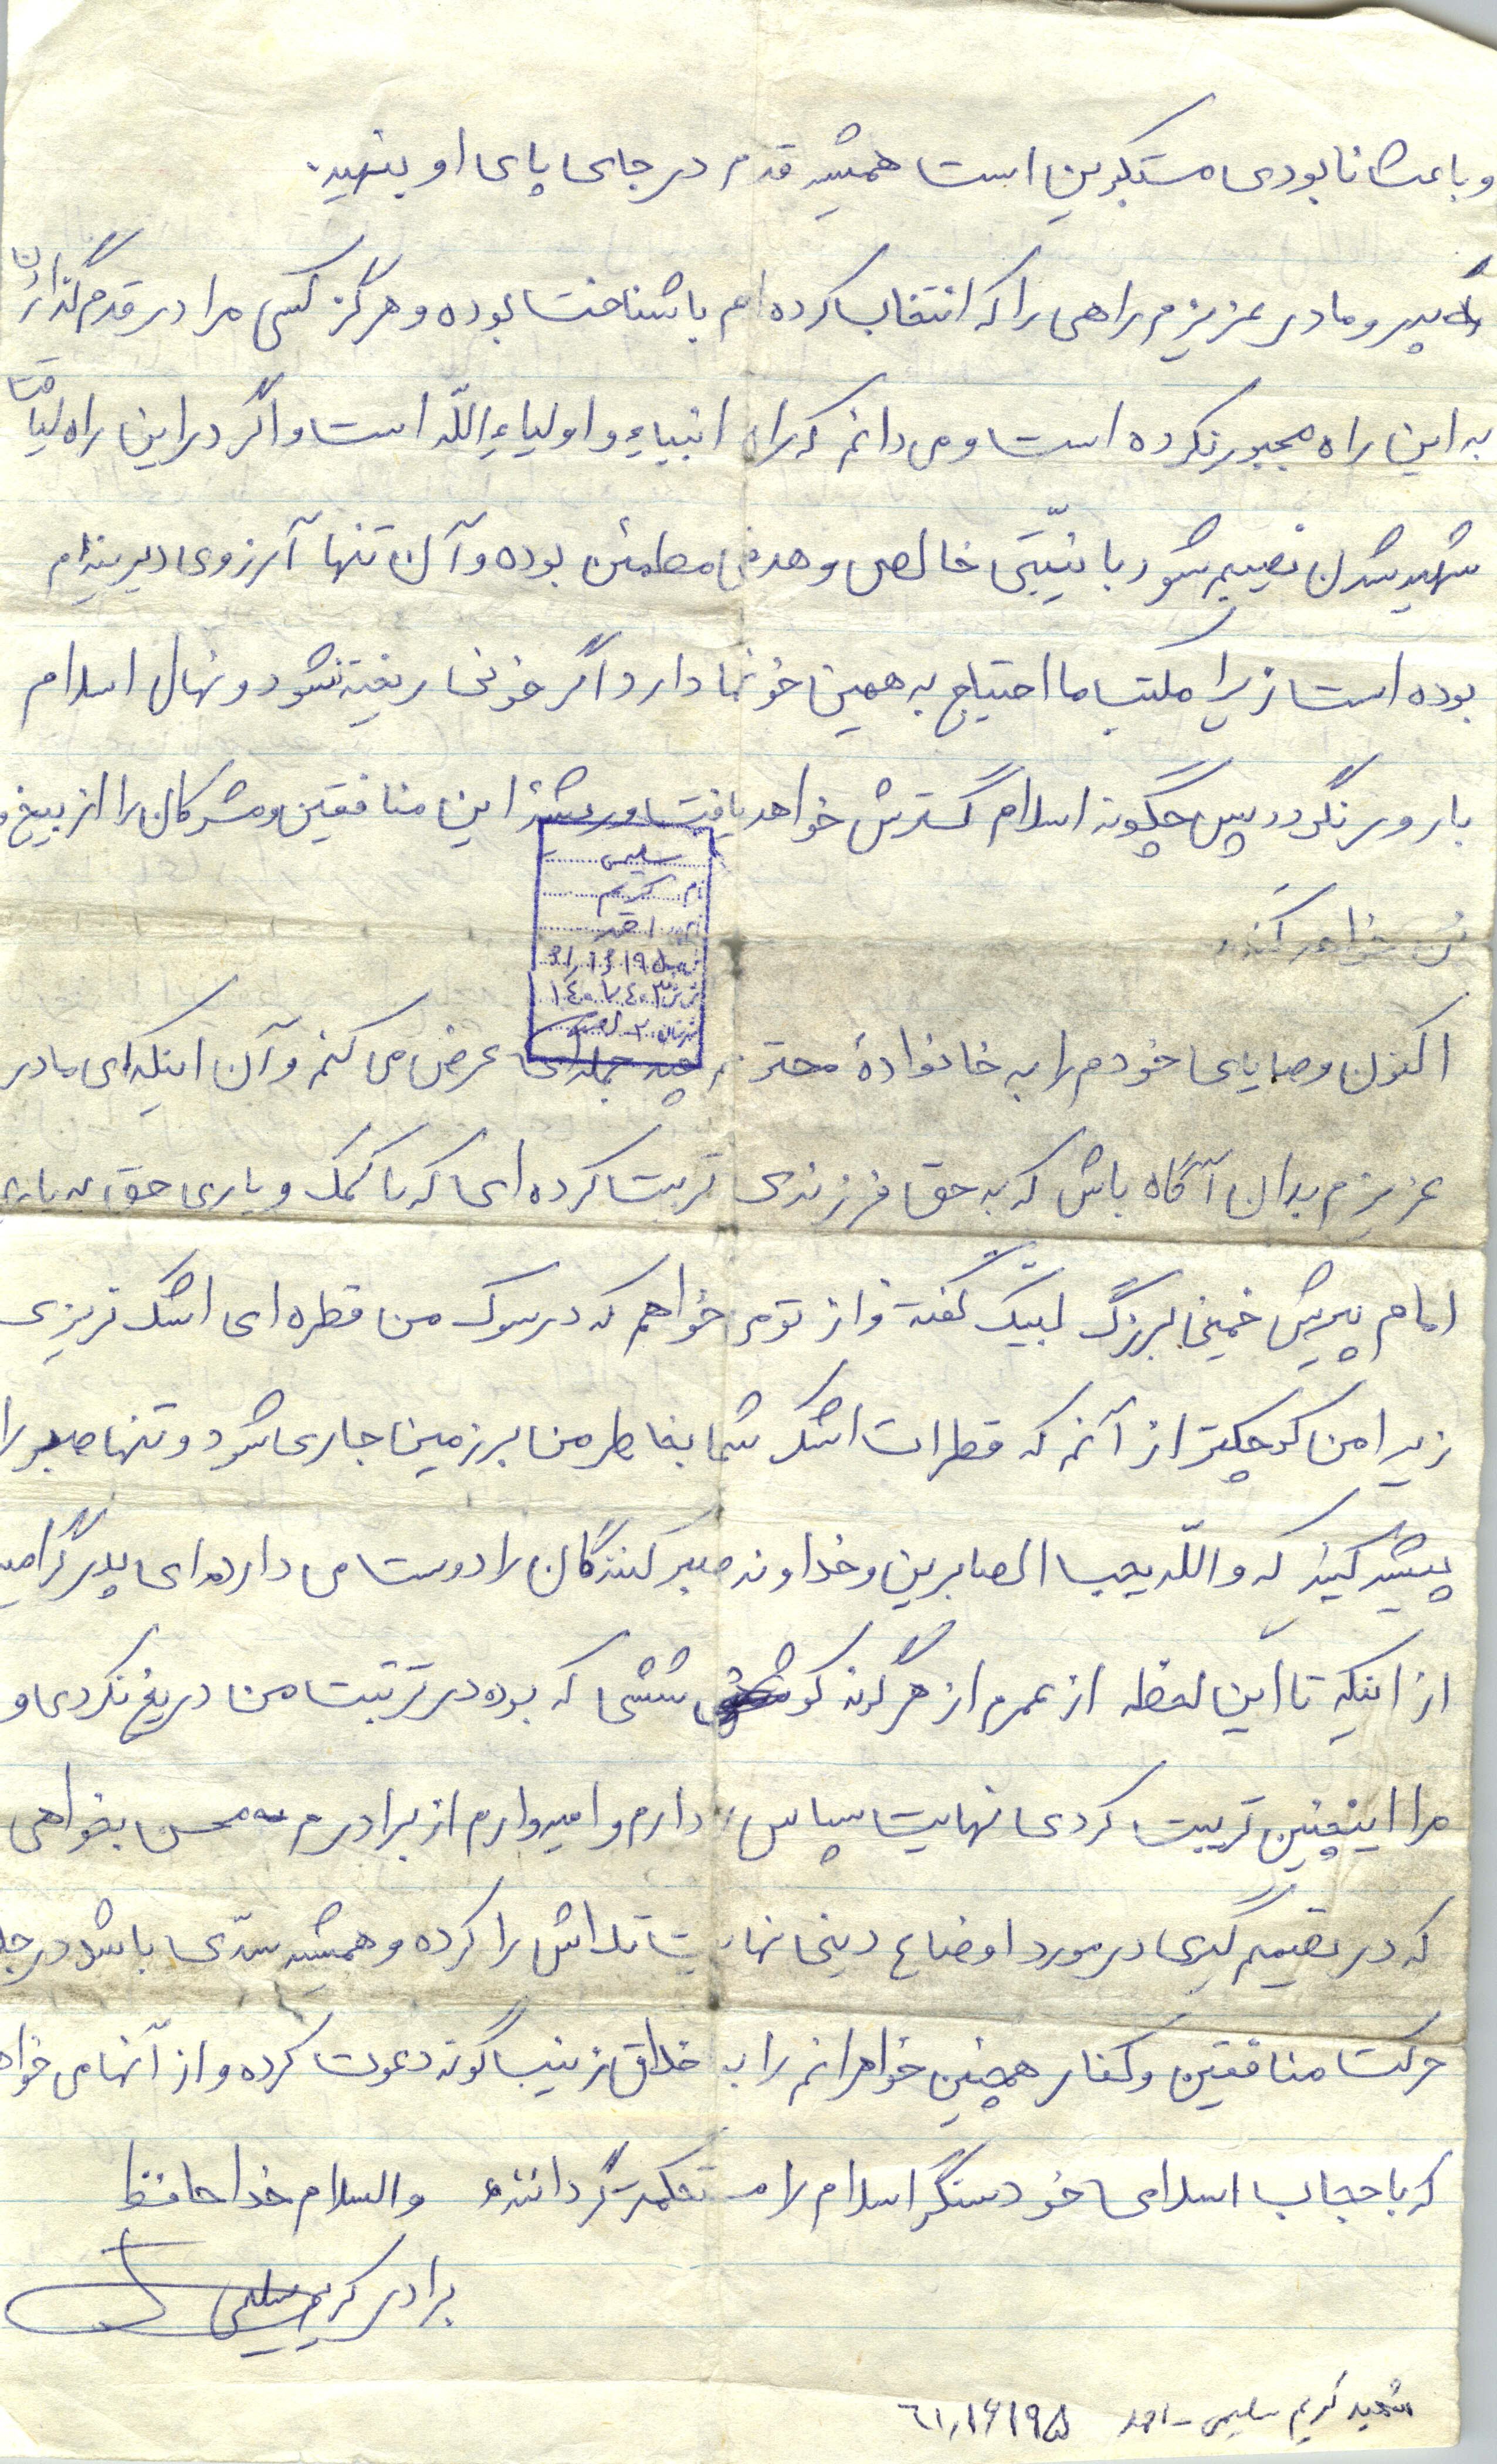 و باعث نابودی مستکبرین است همیشه قدم در جای پای او بنهید.
پدر و مادر عزیزم راهی را که انتخاب کرده‌ام با شناخت بوده و هرگز کسی مرا در قدم گذاردن
به این راه مجبور نکرده است و می دانم که راه انبیاء و اولیاء الله است و اگر در این راه لیاقت
شهید شدن نصیبم شود با نیّتی خالص و هدفی مطمئن بوده و آن تنها آرزوی دیرینه‌ام
بوده است زیرا مکتب ما احتیاج به همین خونها دارد اگر خونی ریخته نشود و نهال اسلام
بارور نگردد پس چگونه اسلام گسترش خواهد یافت و ریشهٔ این منافقین و مشرکان را از بیخ و
بن خواهد کند.
سلیمی
نام کریم
احمد
۶۱,۱۶۱۹۵
اکنون وصایای خودم را به خانوادهٔ محترم چند جمله‌ای عرض می کنم و آن اینکه ای مادر
عزیزم بدان آگاه باش که به حق فرزندی تربیت کرده‌ای که با کمک و یاری حق به یاری
امام پیرش خمینی بزرگ لبیک گفته و از تو می خواهم که در سوگ من قطره‌ای اشک نریزی
زیرا من کوچکتر از آنم که قطرات اشک شما بخاطر من بر زمین جاری شود و تنها صبر را
پیشه کنید که والله یحب الصابرین و خداوند صبر کنندگان را دوست می دارد. ای پدر گرامیم
از اینکه تا این لحظه از عمرم از هر گونه کوششی که بوده در تربیت من دریغ نکردی و
مرا اینچنین تربیت کردی نهایت سپاس را دارم و امیدوارم از برادرم محسن بخواهی
که در تصمیم گیری در مورد اوضاع دینی نهایت تلاش را کرده و همیشه سدّی باشد در جلو
حرکت منافقین و کفار همچنین خواهرانم را به اخلاق زینب گونه دعوت کرده و از آنها می خواهم
که با حجاب اسلامی خود سنگر اسلام را مستحکمتر گردانند والسلام خداحافظ
برادر کریم سلیمی
شهید کریم سلیمی - احمد ۶۱,۱۶۱۹۵